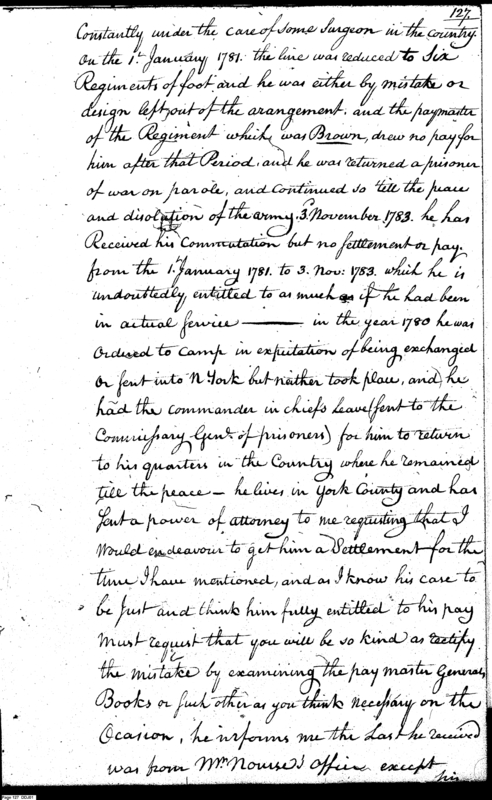 127
Constantly under the care of some Surgeon in the country
On the 1st January 1781. the line was reduced to Six
Regiments of foot and he was either by mistake or
design left out of the arangement. and the paymaster
of the Regiment which was Brown, drew no pay for
him after that Period. and he was returned a prisoner
of war on parole, and Continued so till the peace
and disolution of the army. 3d November 1783. he has
Received his Commutation but no settlement or pay.
from the 1st January 1781. to 3. Nov: 1783. which he is
undoubtedly entitled to as much as if he had been
in actual Service — in the year 1780 he was
Ordered to Camp in expectation of being exchanged
Or sent into N York but neither took place, and he
had the commander in chiefs Leave (sent to the
Commissary Genl. of prisoners) for him to return
to his quarters in the Country where he remained
till the peace — he lives in York County and has
Sent a power of attorney to me requesting that I
Would endeavour to get him a Settlement for the
time I have mentioned, and as I know his case to
be Just and think him fully entitled to his pay
Must request that you will be so kind as rectify
the mistake by examining the pay master Generals
Books or such other as you think necessary on the
Ocasion, he informs me the Last he received
was from Mr. Nourse's office except
his
Page 127 DDJ01